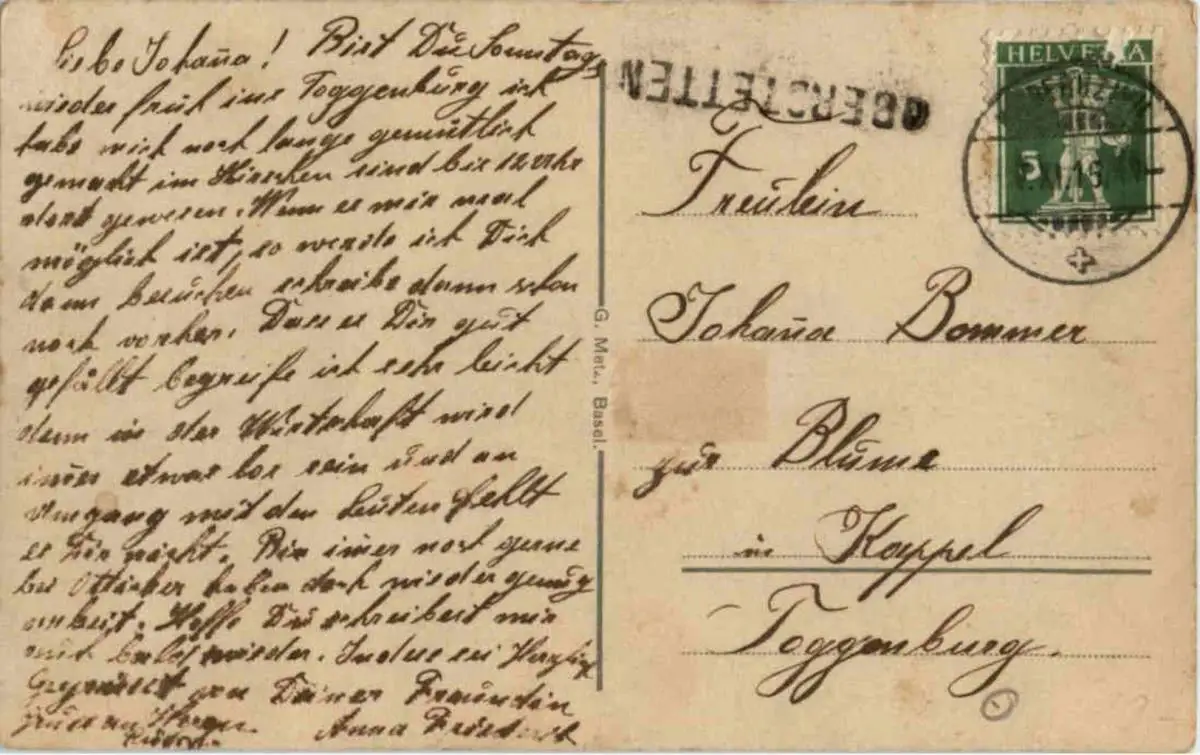 Liebe Johana! Bist Du Sonntags
wieder früh ins Toggenburg ich
habe mich noch lange gemütlich
gemacht im Hirschen sind bis 12 Uhr
dort gewesen. Wenn es mir mal
möglich ist, so werde ich Dich
dann besuchen schreibe dann schon
noch vorher. Dass es Dir gut
gefällt begreife ich sehr leicht
denn in der Wirtschaft wird
imer etwas los sein und an
Umgang mit den Leuten fehlt
es Dir nicht. Bin imer noch gerne
bei haben doch wieder genug
arbeit. Hoffe Du schreibest mir
auch bald wieder. Indes sei Herzlich
Gegrüsst von Deiner Freundin
Anna
G. Metz, Basel.
OBERSTETTEN
HELVETIA
5
Fräulein
Johana Bommer
zur Blume
in Kappel
Toggenburg.